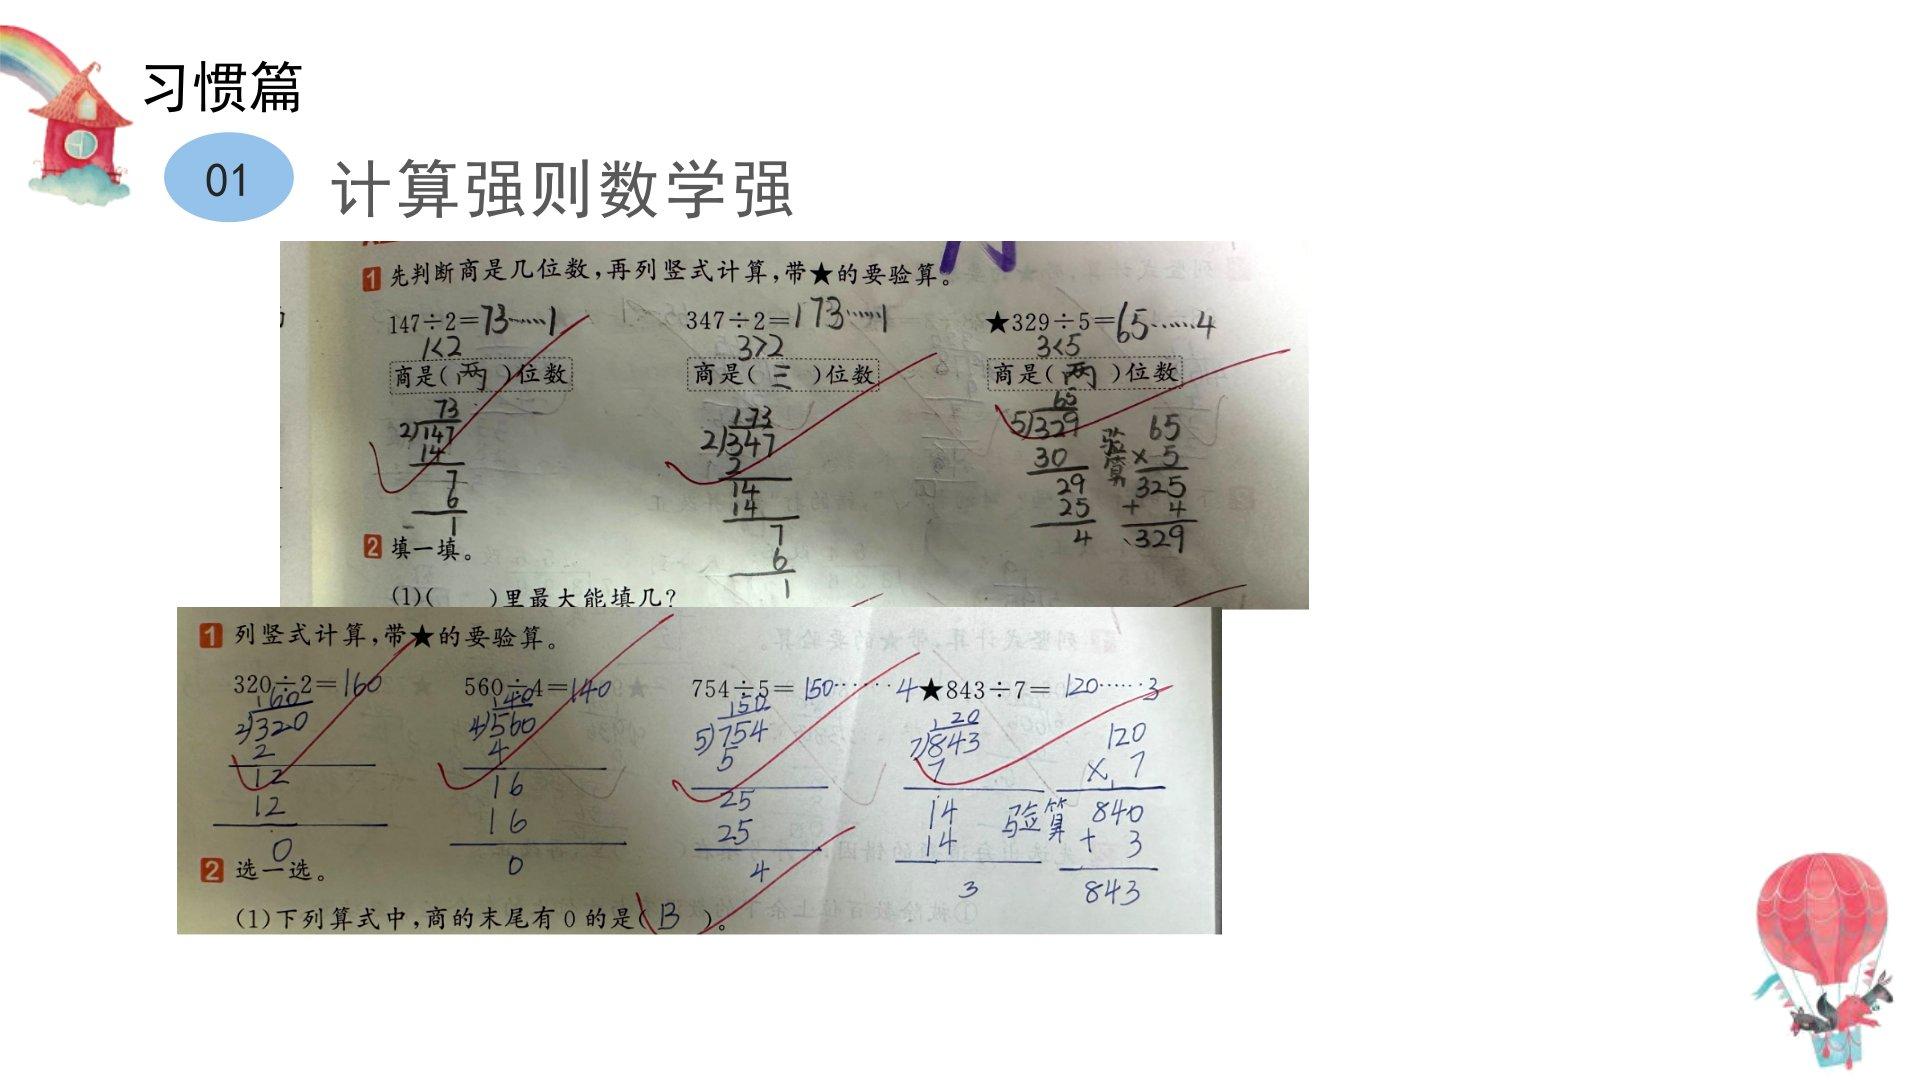 习惯篇
01
计算强则数学强
1 先判断商是几位数,再列竖式计算,带★的要验算。
147÷2=73……1
347÷2=173……1
★329÷5=65……4
1<2
3>2
3<5
商是(两)位数
商是(三)位数
商是(两)位数
73
2)147
14
7
6
1
173
2)347
2
14
14
7
6
1
65
5)329
30
29
25
4
验算
65
× 5
325
+ 4
329
2 填一填。
(1)( )里最大能填几?
1 列竖式计算,带★的要验算。
320÷2=160
560÷4=140
754÷5=150……4
★843÷7=120……3
160
2)320
2
12
12
0
140
4)560
4
16
16
0
150
5)754
5
25
25
4
120
7)843
7
14
14
3
验算
120
× 7
840
+ 3
843
2 选一选。
(1)下列算式中,商的末尾有0的是(B)。